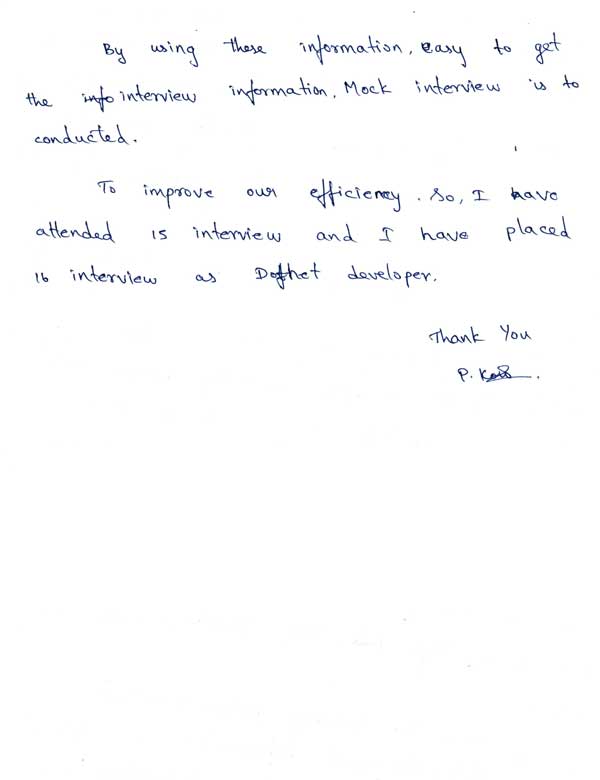 By using these information, easy to get
the interview information. Mock interview is to
conducted.
To improve our efficiency. So, I have
attended 15 interview and I have placed
16 interview as Dothet developer.
Thank You
P.